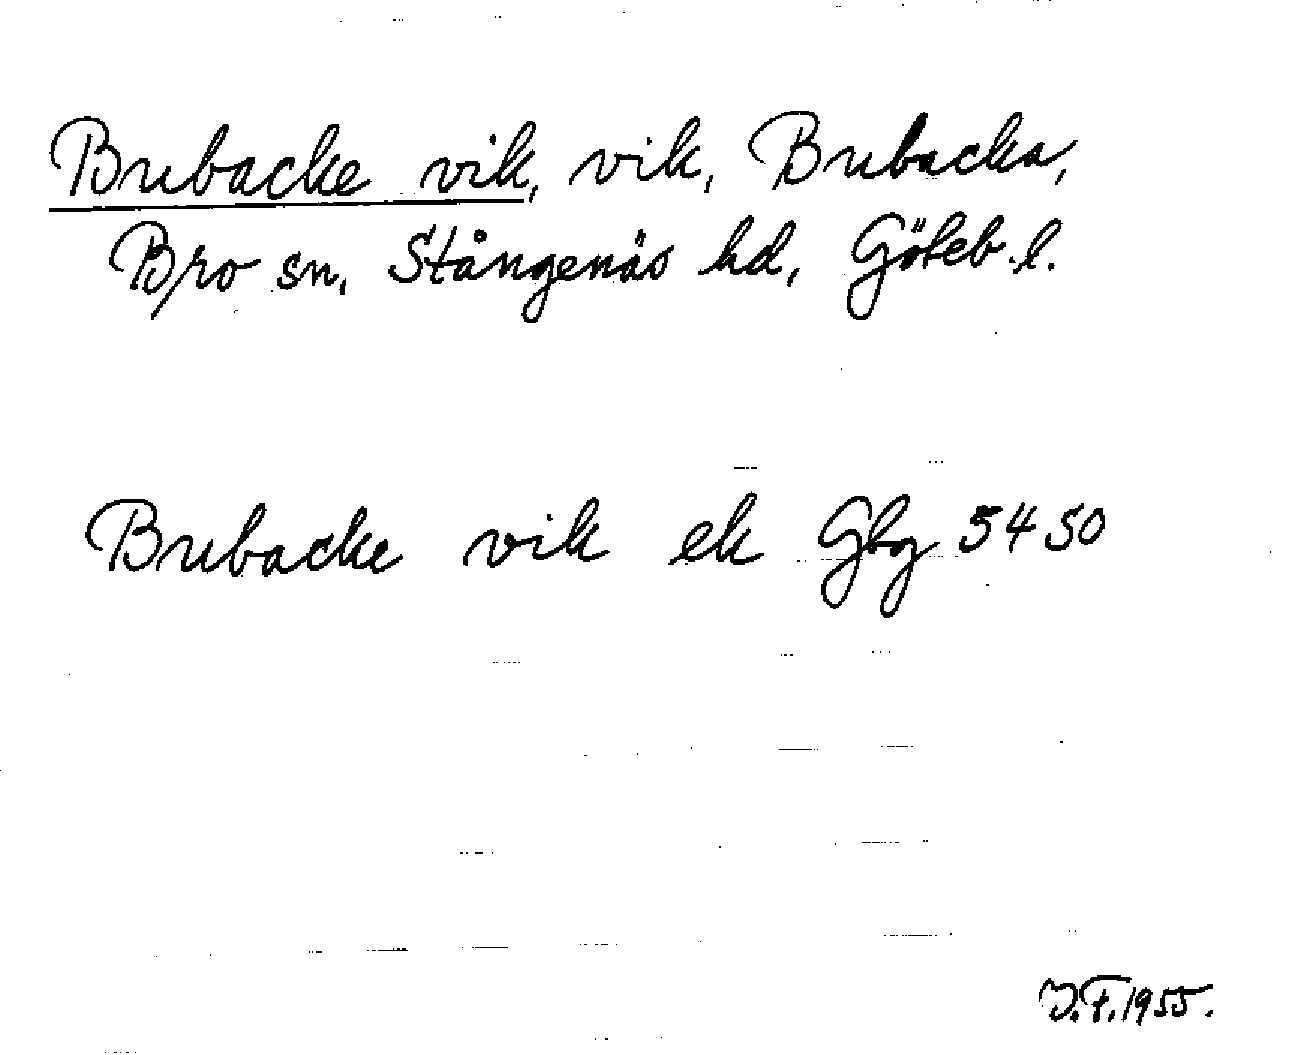 Brubacke vik, vik, Brubacka,
Bro sn, Stångenäs hd, Göteb. l.
Brubacke vik ek Gbg 5450
J.F. 1955.